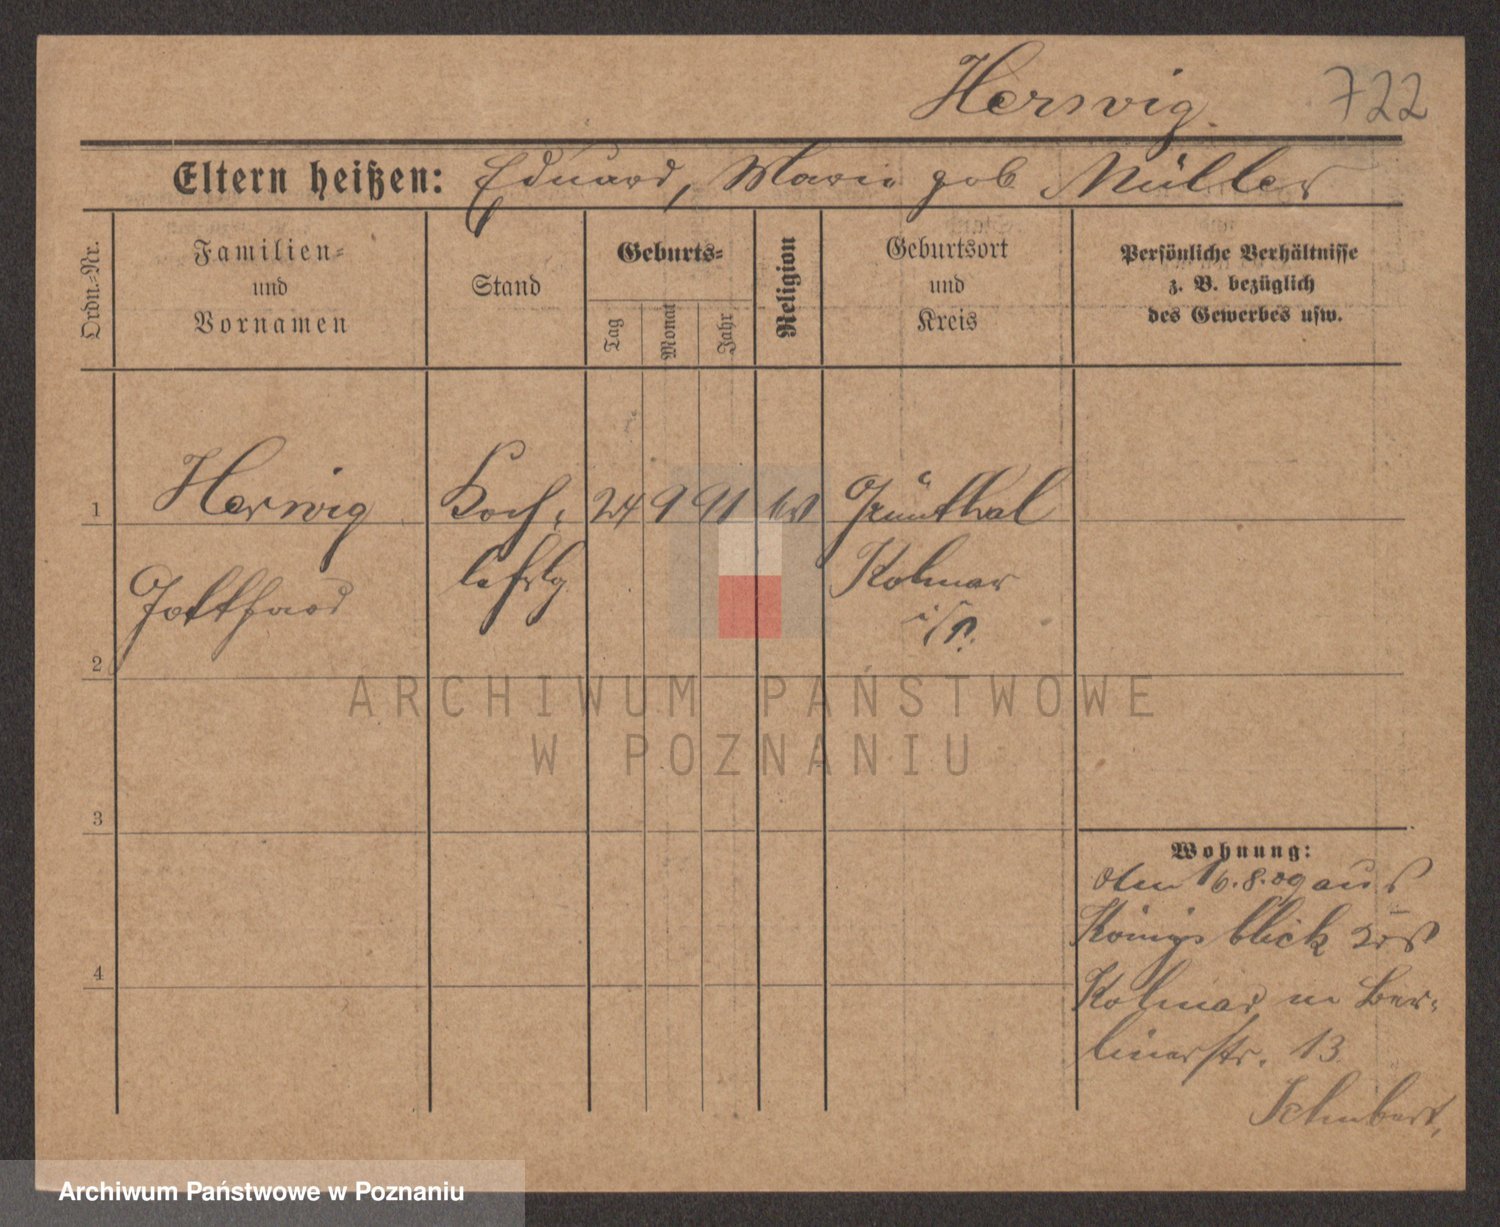 Herwig. 722
Eltern heißen: Eduard, Marie geb Müller
Ordn.-Nr.
Familien-
und
Vornamen
Stand
Geburts-
Tag
Monat
Jahr
Religion
Geburtsort
und
Kreis
Persönliche Verhältnisse
z. B. bezüglich
des Gewerbes usw.
1 Herwig Koch- 24 9 91 ev Grünthal
Gotthard lehrlg Kolmar
i/P.
2
ARCHIWUM PAŃSTWOWE
W POZNANIU
3
Wohnung:
16.8.09 aus
Königsblick Krs
Kolmar n Ber-
linerstr. 13
Schubert.
4
Archiwum Państwowe w Poznaniu